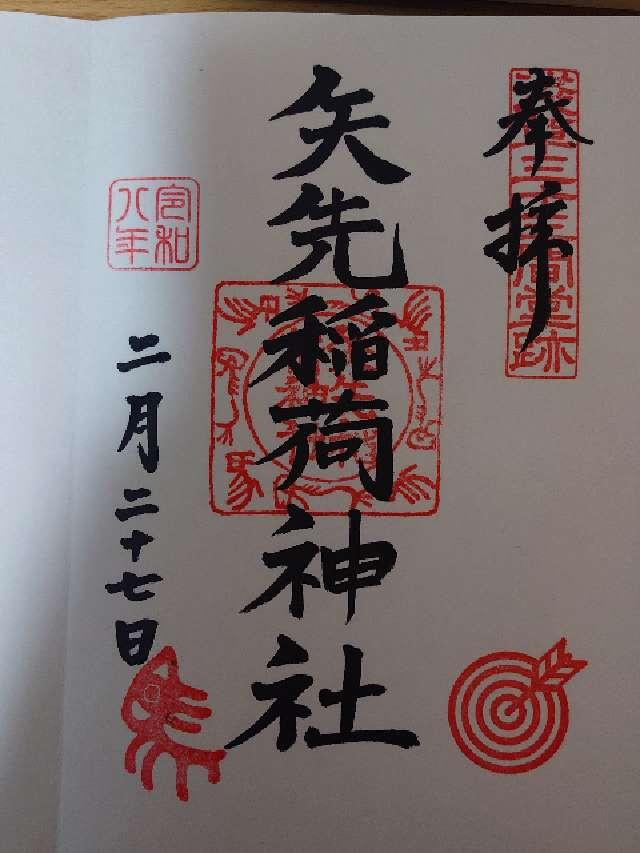 奉拝
浅草三十三間堂跡
矢先稲荷神社
令和
八年
二月二十七日